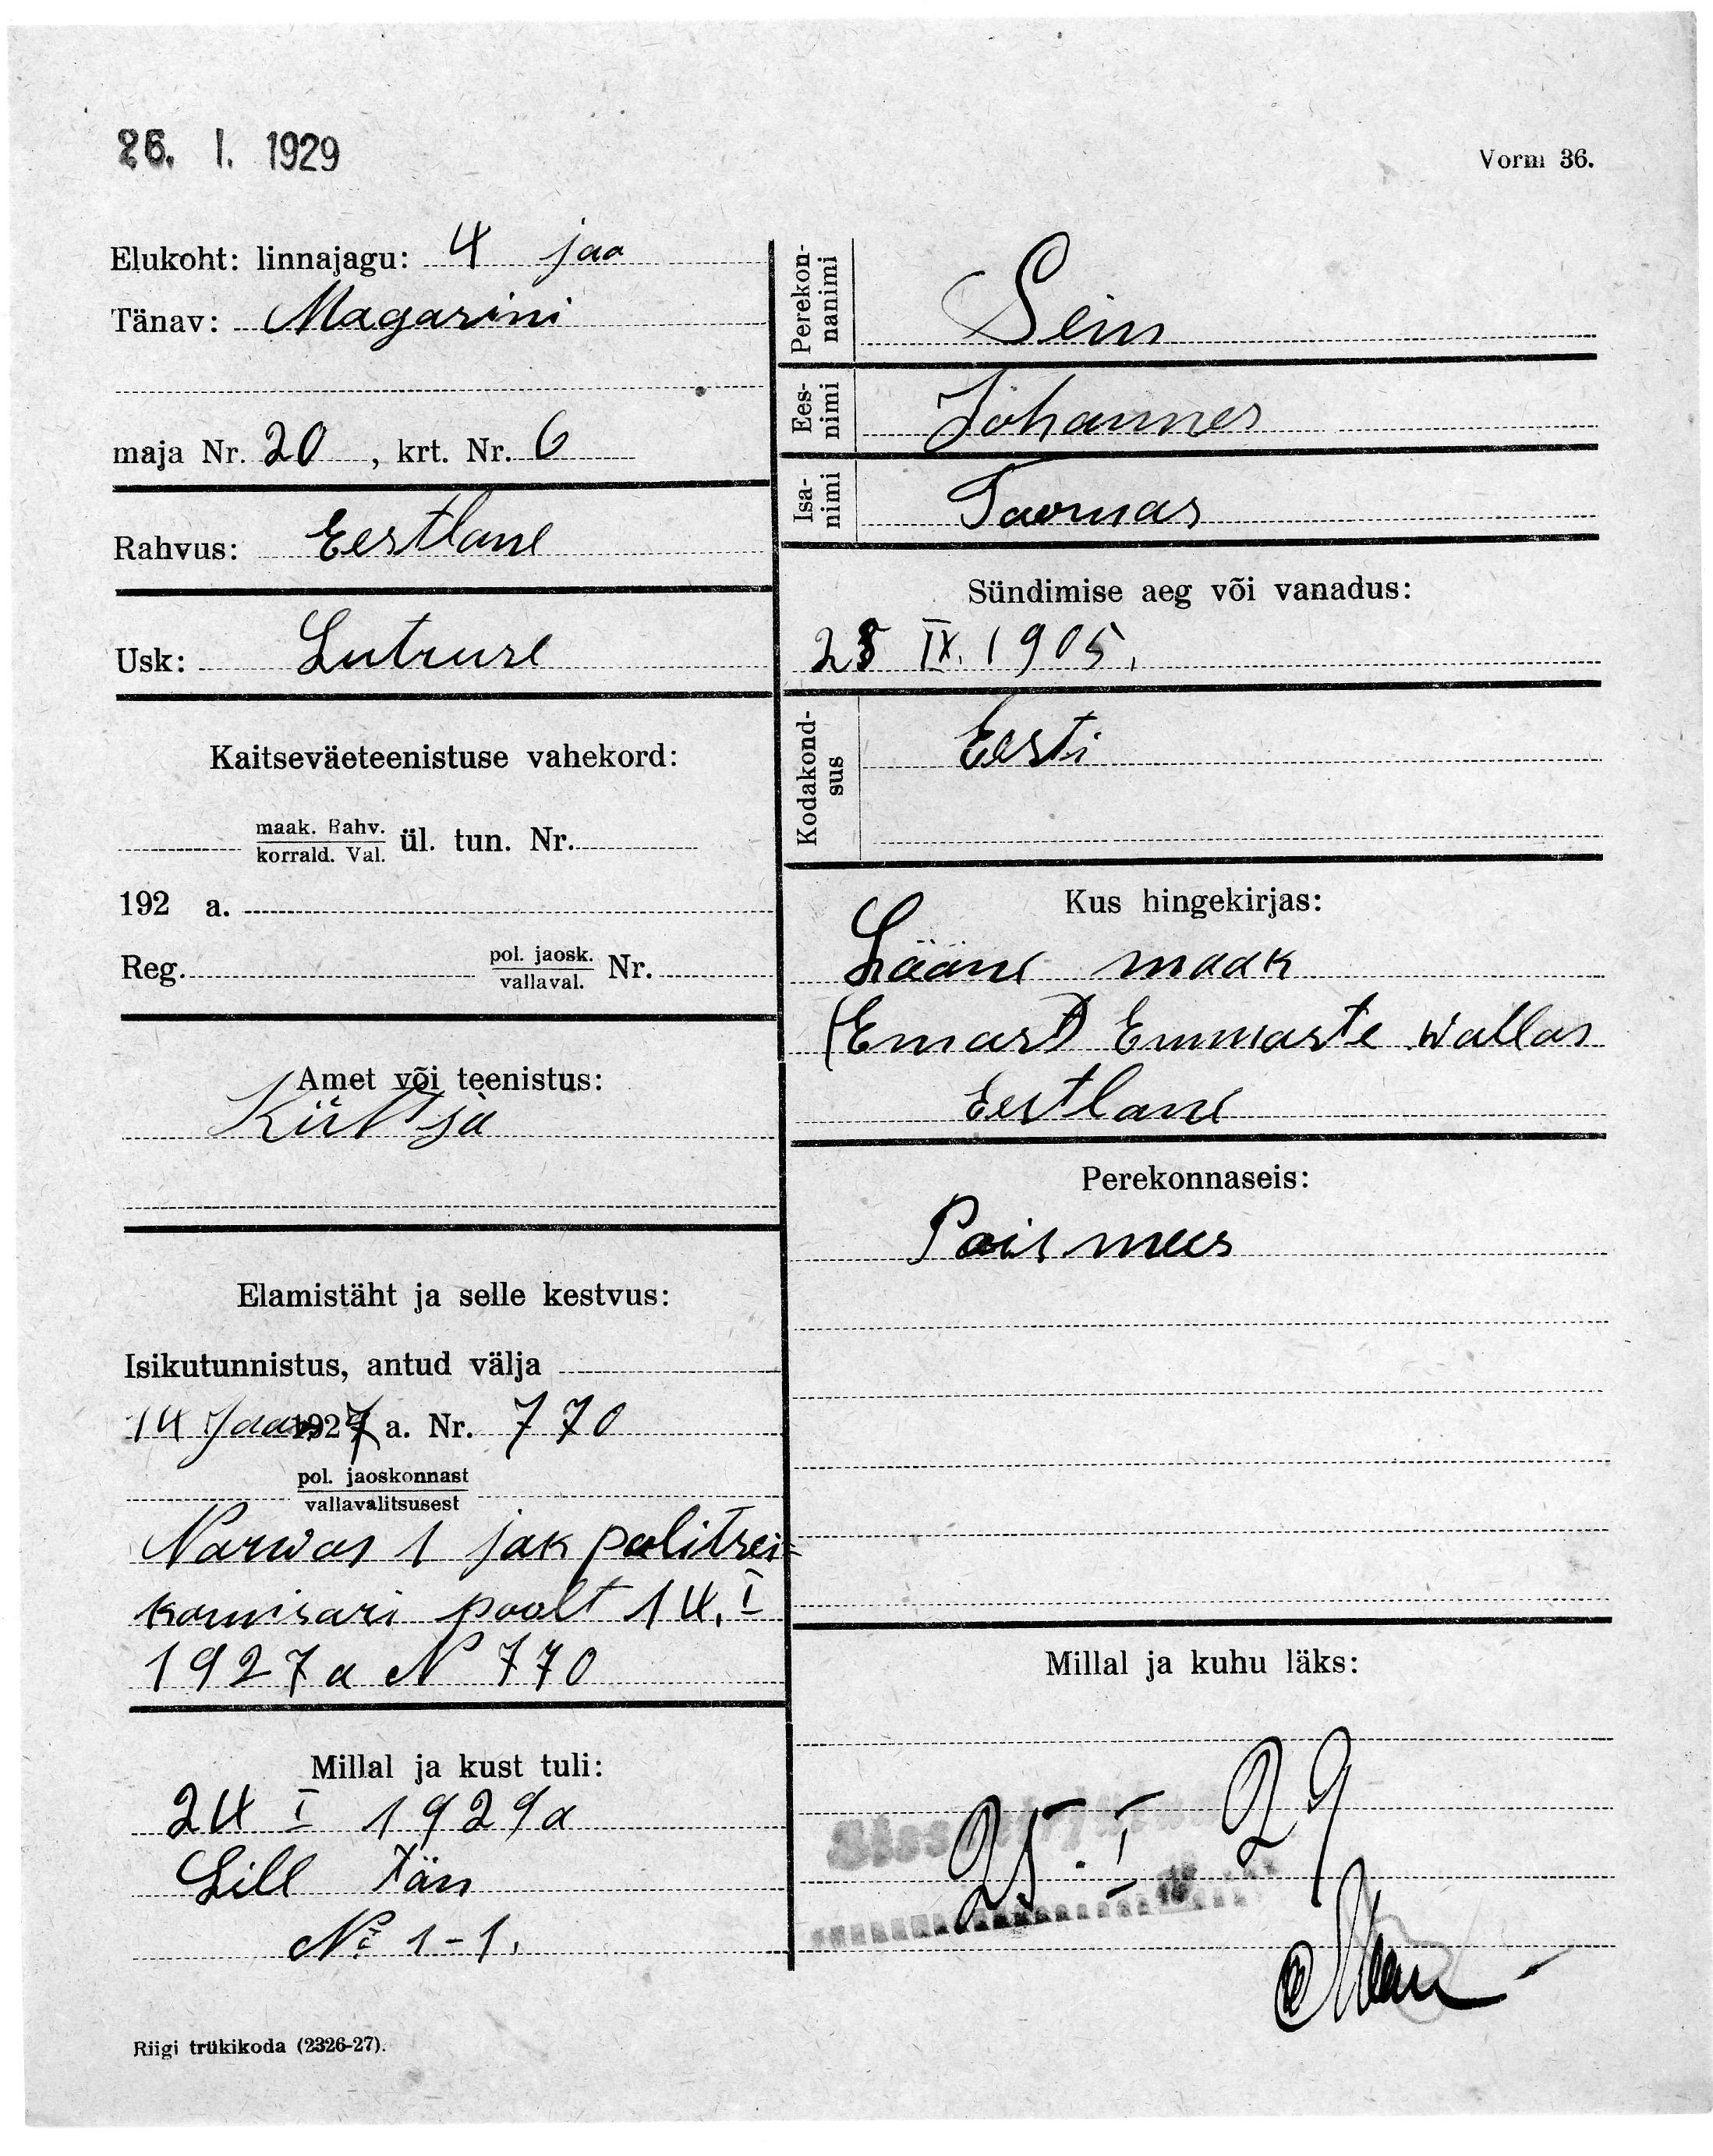 26. I. 1929
Vorm 36.
Elukoht: linnajagu: 4 jao
Tänav: Magasini
maja Nr. 20, krt. Nr. 6
Rahvus: Eestlane
Usk: Lutruse
Kaitseväeteenistuse vahekord:
maak. Rahv.
korrald. Val. ül. tun. Nr.
192 a.
Reg. pol. jaosk.
vallaval. Nr.
Amet või teenistus:
Küttja
Elamistäht ja selle kestvus:
Isikutunnistus, antud välja
14 Jaan 1927 a. Nr. 770
pol. jaoskonnast
vallavalitsusest
Narwas 1 jak politsei=
komisari poolt 14. I
1927 a № 770
Millal ja kust tuli:
24 I 1929 a
Lill tän
№ 1-1.
Riigi trükikoda (2326-27).
Perekon-
nanimi Sein
Ees-
nimi Johannes
Isa-
nimi Toomas
Sündimise aeg või vanadus:
28 IX. 1905.
Kodakond-
sus Eesti
Kus hingekirjas:
Lääne maak
(Emast) Emmaste wallas
Eestlane
Perekonnaseis:
Poismees
Millal ja kuhu läks:
25. I 29